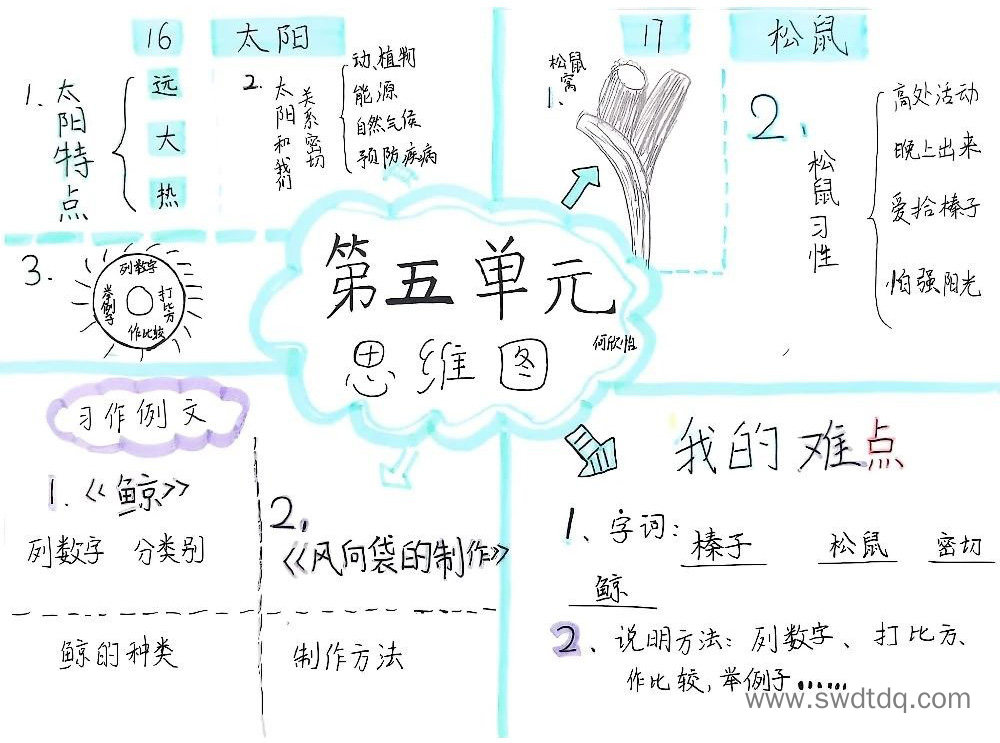 16 太阳
1、太阳特点
远
大
热
2、太阳和我们
关系密切
动、植物
能源
自然气候
预防疾病
3.
列数字
举例子
打比方
作比较
17 松鼠
松鼠窝
1、
2、
松鼠习性
高处活动
晚上出来
爱拾榛子
怕强阳光
第五单元
思维图
何欣怡
习作例文
1.《鲸》
列数字 分类别
鲸的种类
2.
《风向袋的制作》
制作方法
我的难点
1、字词: 榛子 松鼠 密切
鲸
2、说明方法: 列数字、打比方、
作比较,举例子……
www.swdtdq.com